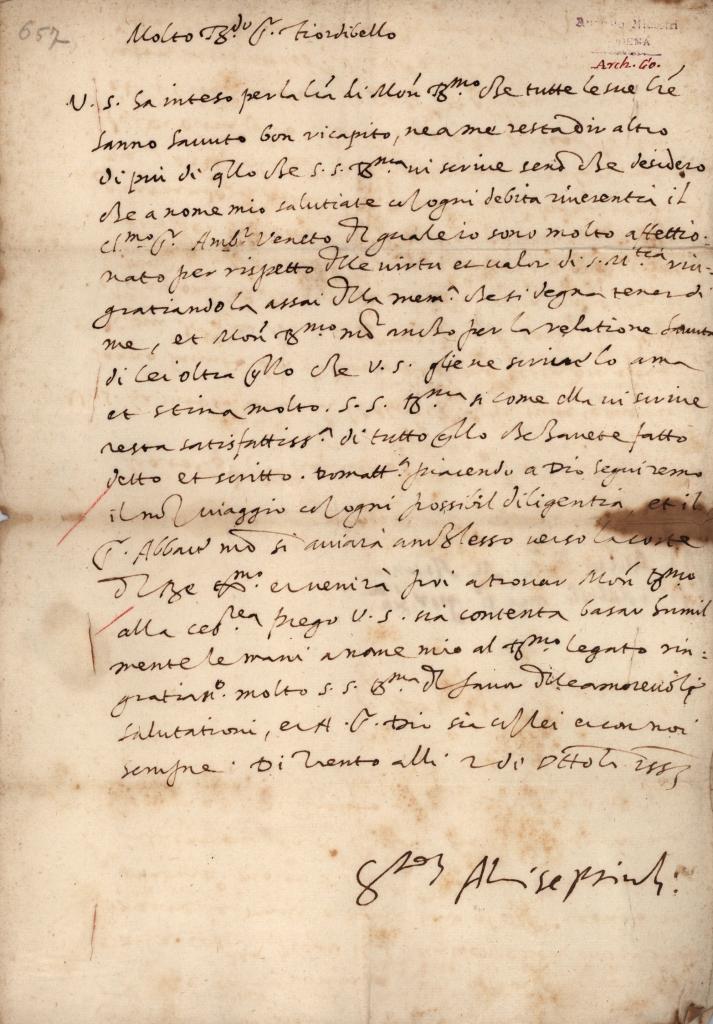 657
Molto R.do S.r Fiordibello
Arch. Go.
V. S. ha inteso per la l'ra di Mon.r R.mo che tutte le sue l're
hanno havuto bon ricapito, ne a me resta dir altro
di piu di q'llo che S. S. R.ma vi scrive seno che desidero
che a nome mio salutiate co'l ogni debita riverentia il
cl.mo S.r Amb.r Veneto del quale io sono molto affettio-
nato per rispetto delle virtu et valor di S. M.tia rin-
gratiandola assai della mem.a che si degna tener di
me, et Mon.r R.mo n'ro ancho per la relatione havuta
di lei oltra q'llo che V. S. gliene scrive lo ama
et stima molto. S. S. R.ma si come ella vi scrive
resta satisfattiss.a di tutto q'llo che havete fatto
detto et scritto. Domatt.a piacendo a Dio seguiremo
il n'ro viaggio co'l ogni possibil diligentia, et il
S.r Abbate n'ro si aviarà anch'esso verso la corte
del Re et venirà poi a trovar Mon.r R.mo
alla prego V. S. sia contenta basar humil
mente le mani a nome mio al R.mo legato rin-
gratian.o molto S. S. R.ma del favor delle amorevoli
salutationi, et N. S. Dio sia co'llei et con noi
sempre. Di Trento alli 2 di Ottob. 1553